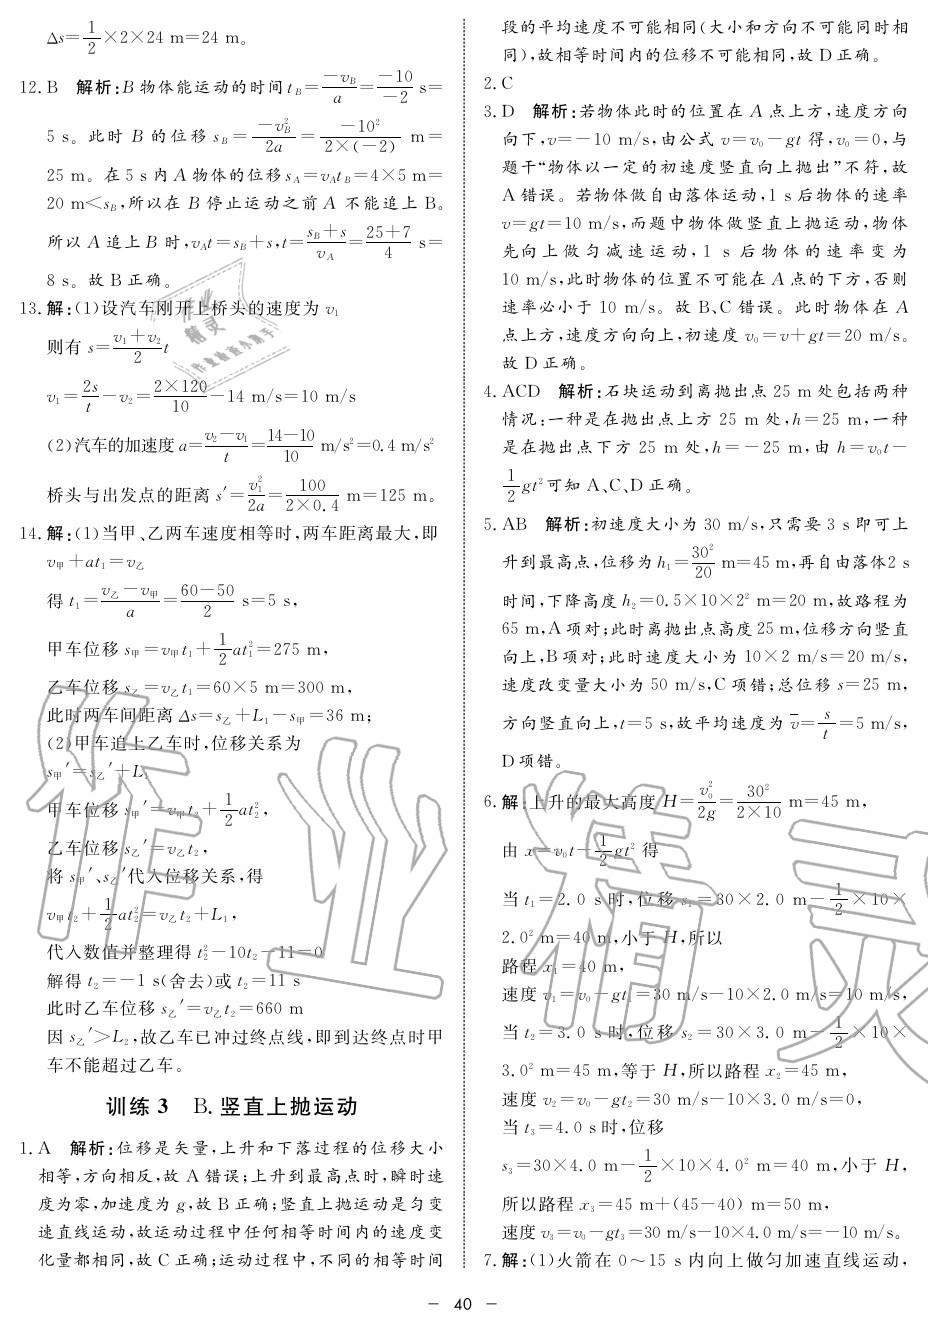 Δs=1/2×2×24 m=24 m。
12. B 解析:B 物体能运动的时间 t_B=(-v_B)/a=(-10)/(-2) s=
5 s。此时 B 的位移 s_B=(-v_B²)/(2a)=(-10²)/(2×(-2)) m=
25 m。在 5 s 内 A 物体的位移 s_A=v_A t_B=4×5 m=
20 m<s_B,所以在 B 停止运动之前 A 不能追上 B。
所以 A 追上 B 时,v_A t=s_B+s,t=(s_B+s)/v_A=(25+7)/4 s=
8 s。故 B 正确。
13. 解:(1)设汽车刚开上桥头的速度为 v₁
则有 s=(v₁+v₂)/2 t
v₁=2s/t-v₂=(2×120)/10-14 m/s=10 m/s
(2)汽车的加速度 a=(v₂-v₁)/t=(14-10)/10 m/s²=0.4 m/s²
桥头与出发点的距离 s′=v₁²/(2a)=100/(2×0.4) m=125 m。
14. 解:(1)当甲、乙两车速度相等时,两车距离最大,即
v甲+at₁=v乙
得 t₁=(v乙-v甲)/a=(60-50)/2 s=5 s,
甲车位移 s甲=v甲t₁+1/2at₁²=275 m,
乙车位移 s乙=v乙t₁=60×5 m=300 m,
此时两车间距离 Δs=s乙+L₁-s甲=36 m;
(2)甲车追上乙车时,位移关系为
s甲′=s乙′+L₁
甲车位移 s甲′=v甲t₂+1/2at₂²,
乙车位移 s乙′=v乙t₂,
将 s甲′、s乙′代入位移关系,得
v甲t₂+1/2at₂²=v乙t₂+L₁,
代入数值并整理得 t₂²-10t₂-11=0
解得 t₂=-1 s(舍去)或 t₂=11 s
此时乙车位移 s乙′=v乙t₂=660 m
因 s乙′>L₂,故乙车已冲过终点线,即到达终点时甲
车不能超过乙车。
训练 3 B. 竖直上抛运动
1. A 解析:位移是矢量,上升和下落过程的位移大小
相等,方向相反,故 A 错误;上升到最高点时,瞬时速
度为零,加速度为 g,故 B 正确;竖直上抛运动是匀变
速直线运动,故运动过程中任何相等时间内的速度变
化量都相同,故 C 正确;运动过程中,不同的相等时间
段的平均速度不可能相同(大小和方向不可能同时相
同),故相等时间内的位移不可能相同,故 D 正确。
2. C
3. D 解析:若物体此时的位置在 A 点上方,速度方向
向下,v=-10 m/s,由公式 v=v₀-gt 得,v₀=0,与
题干“物体以一定的初速度竖直向上抛出”不符,故
A 错误。若物体做自由落体运动,1 s 后物体的速率
v=gt=10 m/s,而题中物体做竖直上抛运动,物体
先向上做匀减速运动,1 s 后物体的速率变为
10 m/s,此时物体的位置不可能在 A 点的下方,否则
速率必小于 10 m/s。故 B、C 错误。此时物体在 A
点上方,速度方向向上,初速度 v₀=v+gt=20 m/s。
故 D 正确。
4. ACD 解析:石块运动到离抛出点 25 m 处包括两种
情况:一种是在抛出点上方 25 m 处,h=25 m,一种
是在抛出点下方 25 m 处,h=-25 m,由 h=v₀t-
1/2gt² 可知 A、C、D 正确。
5. AB 解析:初速度大小为 30 m/s,只需要 3 s 即可上
升到最高点,位移为 h₁=30²/20 m=45 m,再自由落体2 s
时间,下降高度 h₂=0.5×10×2² m=20 m,故路程为
65 m,A 项对;此时离抛出点高度 25 m,位移方向竖直
向上,B 项对;此时速度大小为 10×2 m/s=20 m/s,
速度改变量大小为 50 m/s,C 项错;总位移 s=25 m,
方向竖直向上,t=5 s,故平均速度为 v̄=s/t=5 m/s,
D 项错。
6. 解:上升的最大高度 H=v₀²/(2g)=30²/(2×10) m=45 m,
由 x=v₀t-1/2gt² 得
当 t₁=2.0 s 时,位移 s₁=30×2.0 m-1/2×10×
2.0² m=40 m,小于 H,所以
路程 x₁=40 m,
速度 v₁=v₀-gt₁=30 m/s-10×2.0 m/s=10 m/s,
当 t₂=3.0 s 时,位移 s₂=30×3.0 m-1/2×10×
3.0² m=45 m,等于 H,所以路程 x₂=45 m,
速度 v₂=v₀-gt₂=30 m/s-10×3.0 m/s=0,
当 t₃=4.0 s 时,位移
s₃=30×4.0 m-1/2×10×4.0² m=40 m,小于 H,
所以路程 x₃=45 m+(45-40) m=50 m,
速度 v₃=v₀-gt₃=30 m/s-10×4.0 m/s=-10 m/s。
7. 解:(1)火箭在 0～15 s 内向上做匀加速直线运动,
- 40 -
作业精灵